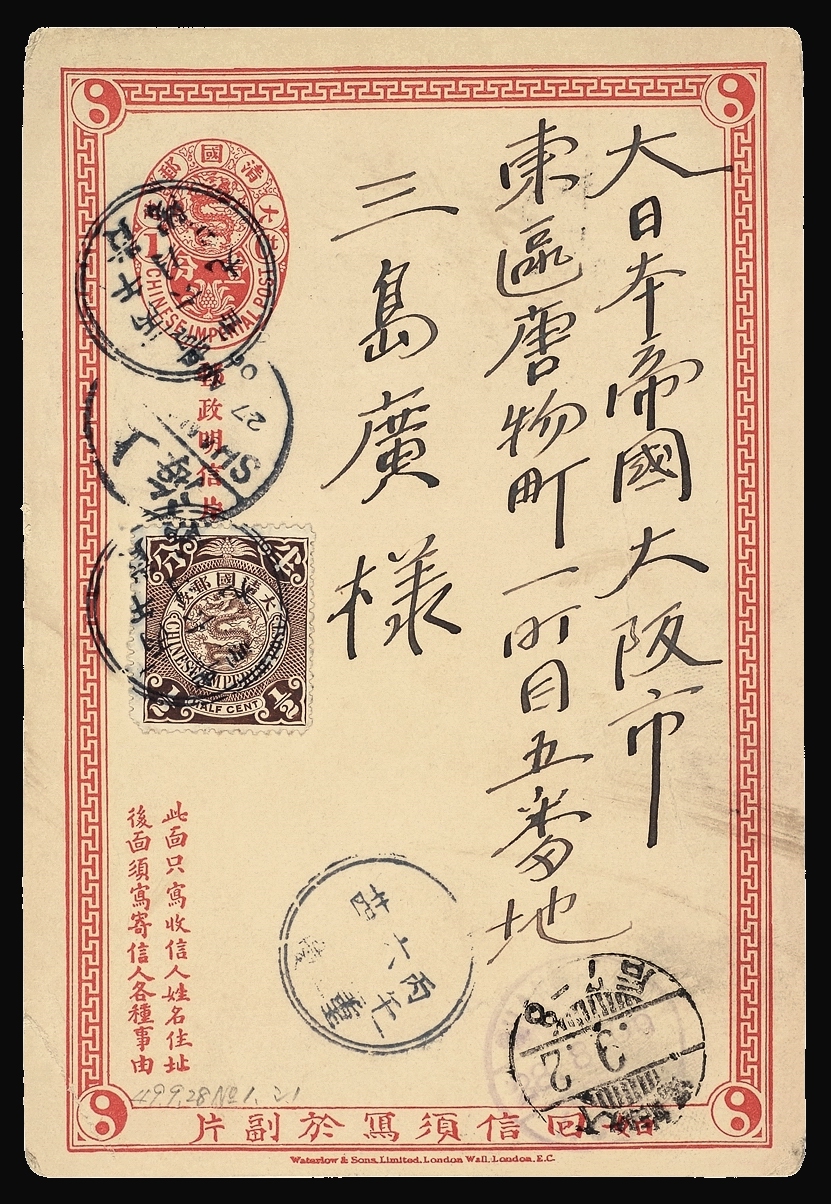 大日本帝國大阪市
東區唐物町一町目五番地
三島廣様
大清國郵政
CHINESE IMPERIAL POST
郵政明信片
27
SHAN
大清國郵政
CHINESE IMPERIAL POST
1/2
1/2
HALF CENT
此面只寫收信人姓名住址
後面須寫寄信人各種事由
丙午
六
廿四
3.2
49.9.28 No 1. 21
如回信須寫於副片
Waterlow & Sons, Limited, London Wall, London, E.C.